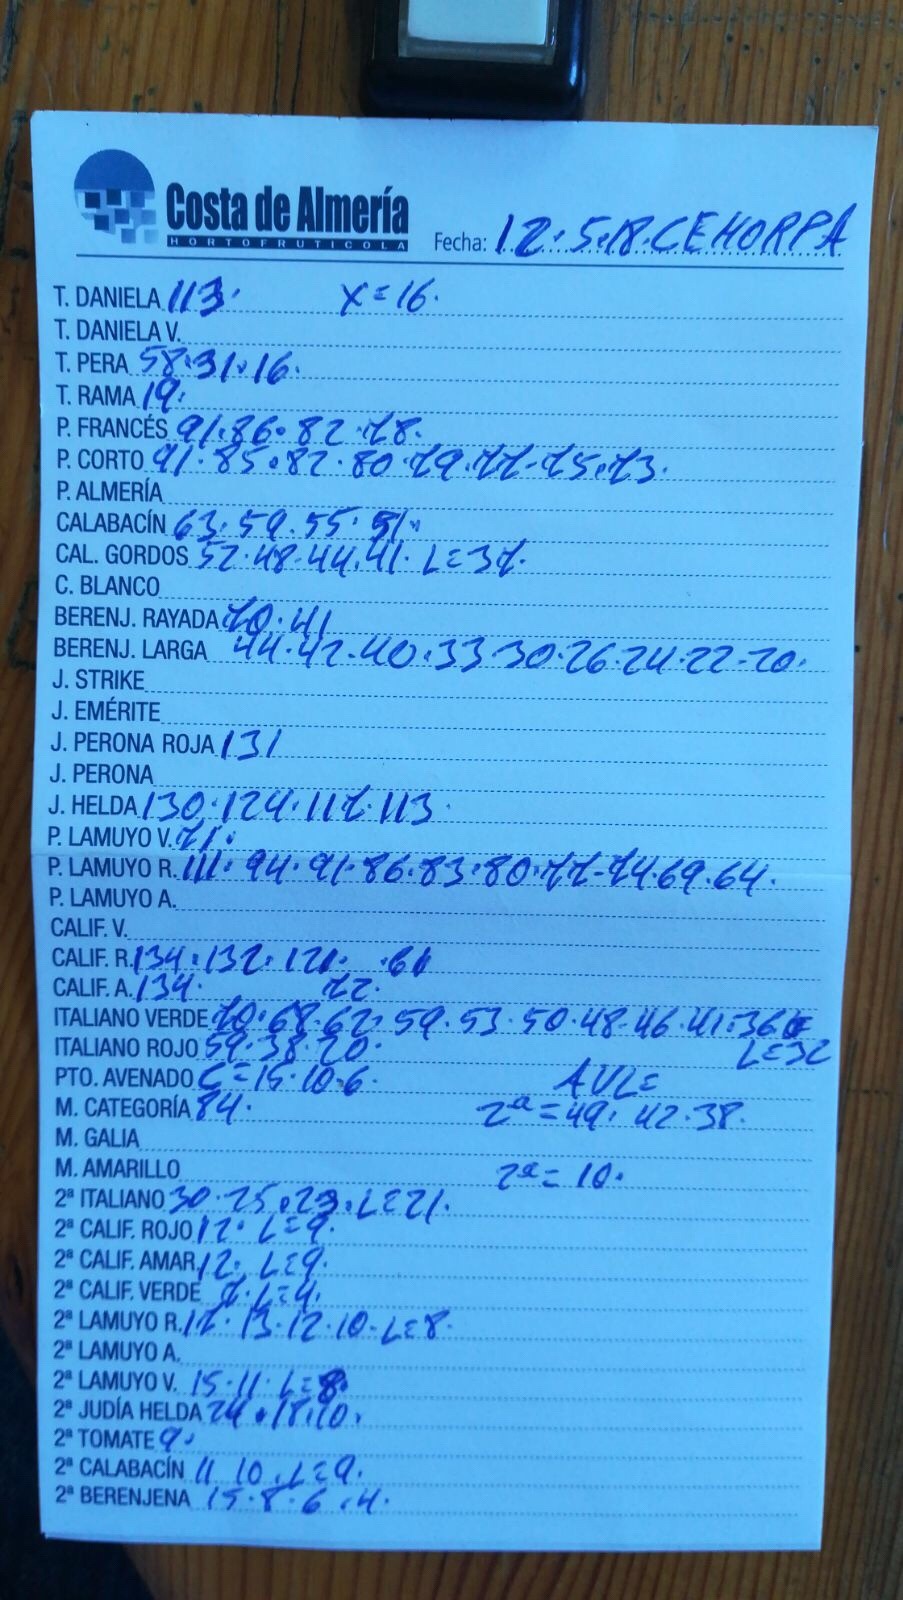 Costa de Almería
HORTOFRUTICOLA
Fecha: 12.5.18.CEHORPA
T. DANIELA 113. X=16.
T. DANIELA V.
T. PERA 58.31.16.
T. RAMA 19.
P. FRANCÉS 91.86.82.78.
P. CORTO 91.85.82.80.79.77.75.73.
P. ALMERÍA
CALABACÍN 63.59.55.51.
CAL. GORDOS 52.48.44.41. L=37.
C. BLANCO
BERENJ. RAYADA 70.41
BERENJ. LARGA 44.42.40.33 30.26.24.22.20.
J. STRIKE
J. EMÉRITE
J. PERONA ROJA 131
J. PERONA
J. HELDA 130.124.117.113.
P. LAMUYO V. 71.
P. LAMUYO R. 111.94.91.86.83.80.77.74.69.64.
P. LAMUYO A.
CALIF. V.
CALIF. R. 134.132.121. .61
CALIF. A. 134. 72.
ITALIANO VERDE 70.68.62.59.53.50.48.46.41.36
ITALIANO ROJO 59.38.20. L=32
PTO. AVENADO C=15.10.6.
M. CATEGORÍA 84. 2ª=49. 42.38.
M. GALIA
M. AMARILLO 2ª=10.
2ª ITALIANO 30.25.23.L=21.
2ª CALIF. ROJO 12. L=9.
2ª CALIF. AMAR. 12. L=9.
2ª CALIF. VERDE 7.L=4.
2ª LAMUYO R. 17.13.12.10.L=8.
2ª LAMUYO A.
2ª LAMUYO V. 15.11.L=8.
2ª JUDÍA HELDA 24.18.10.
2ª TOMATE 9.
2ª CALABACÍN 11 10.L=9.
2ª BERENJENA 15.8.6.4.